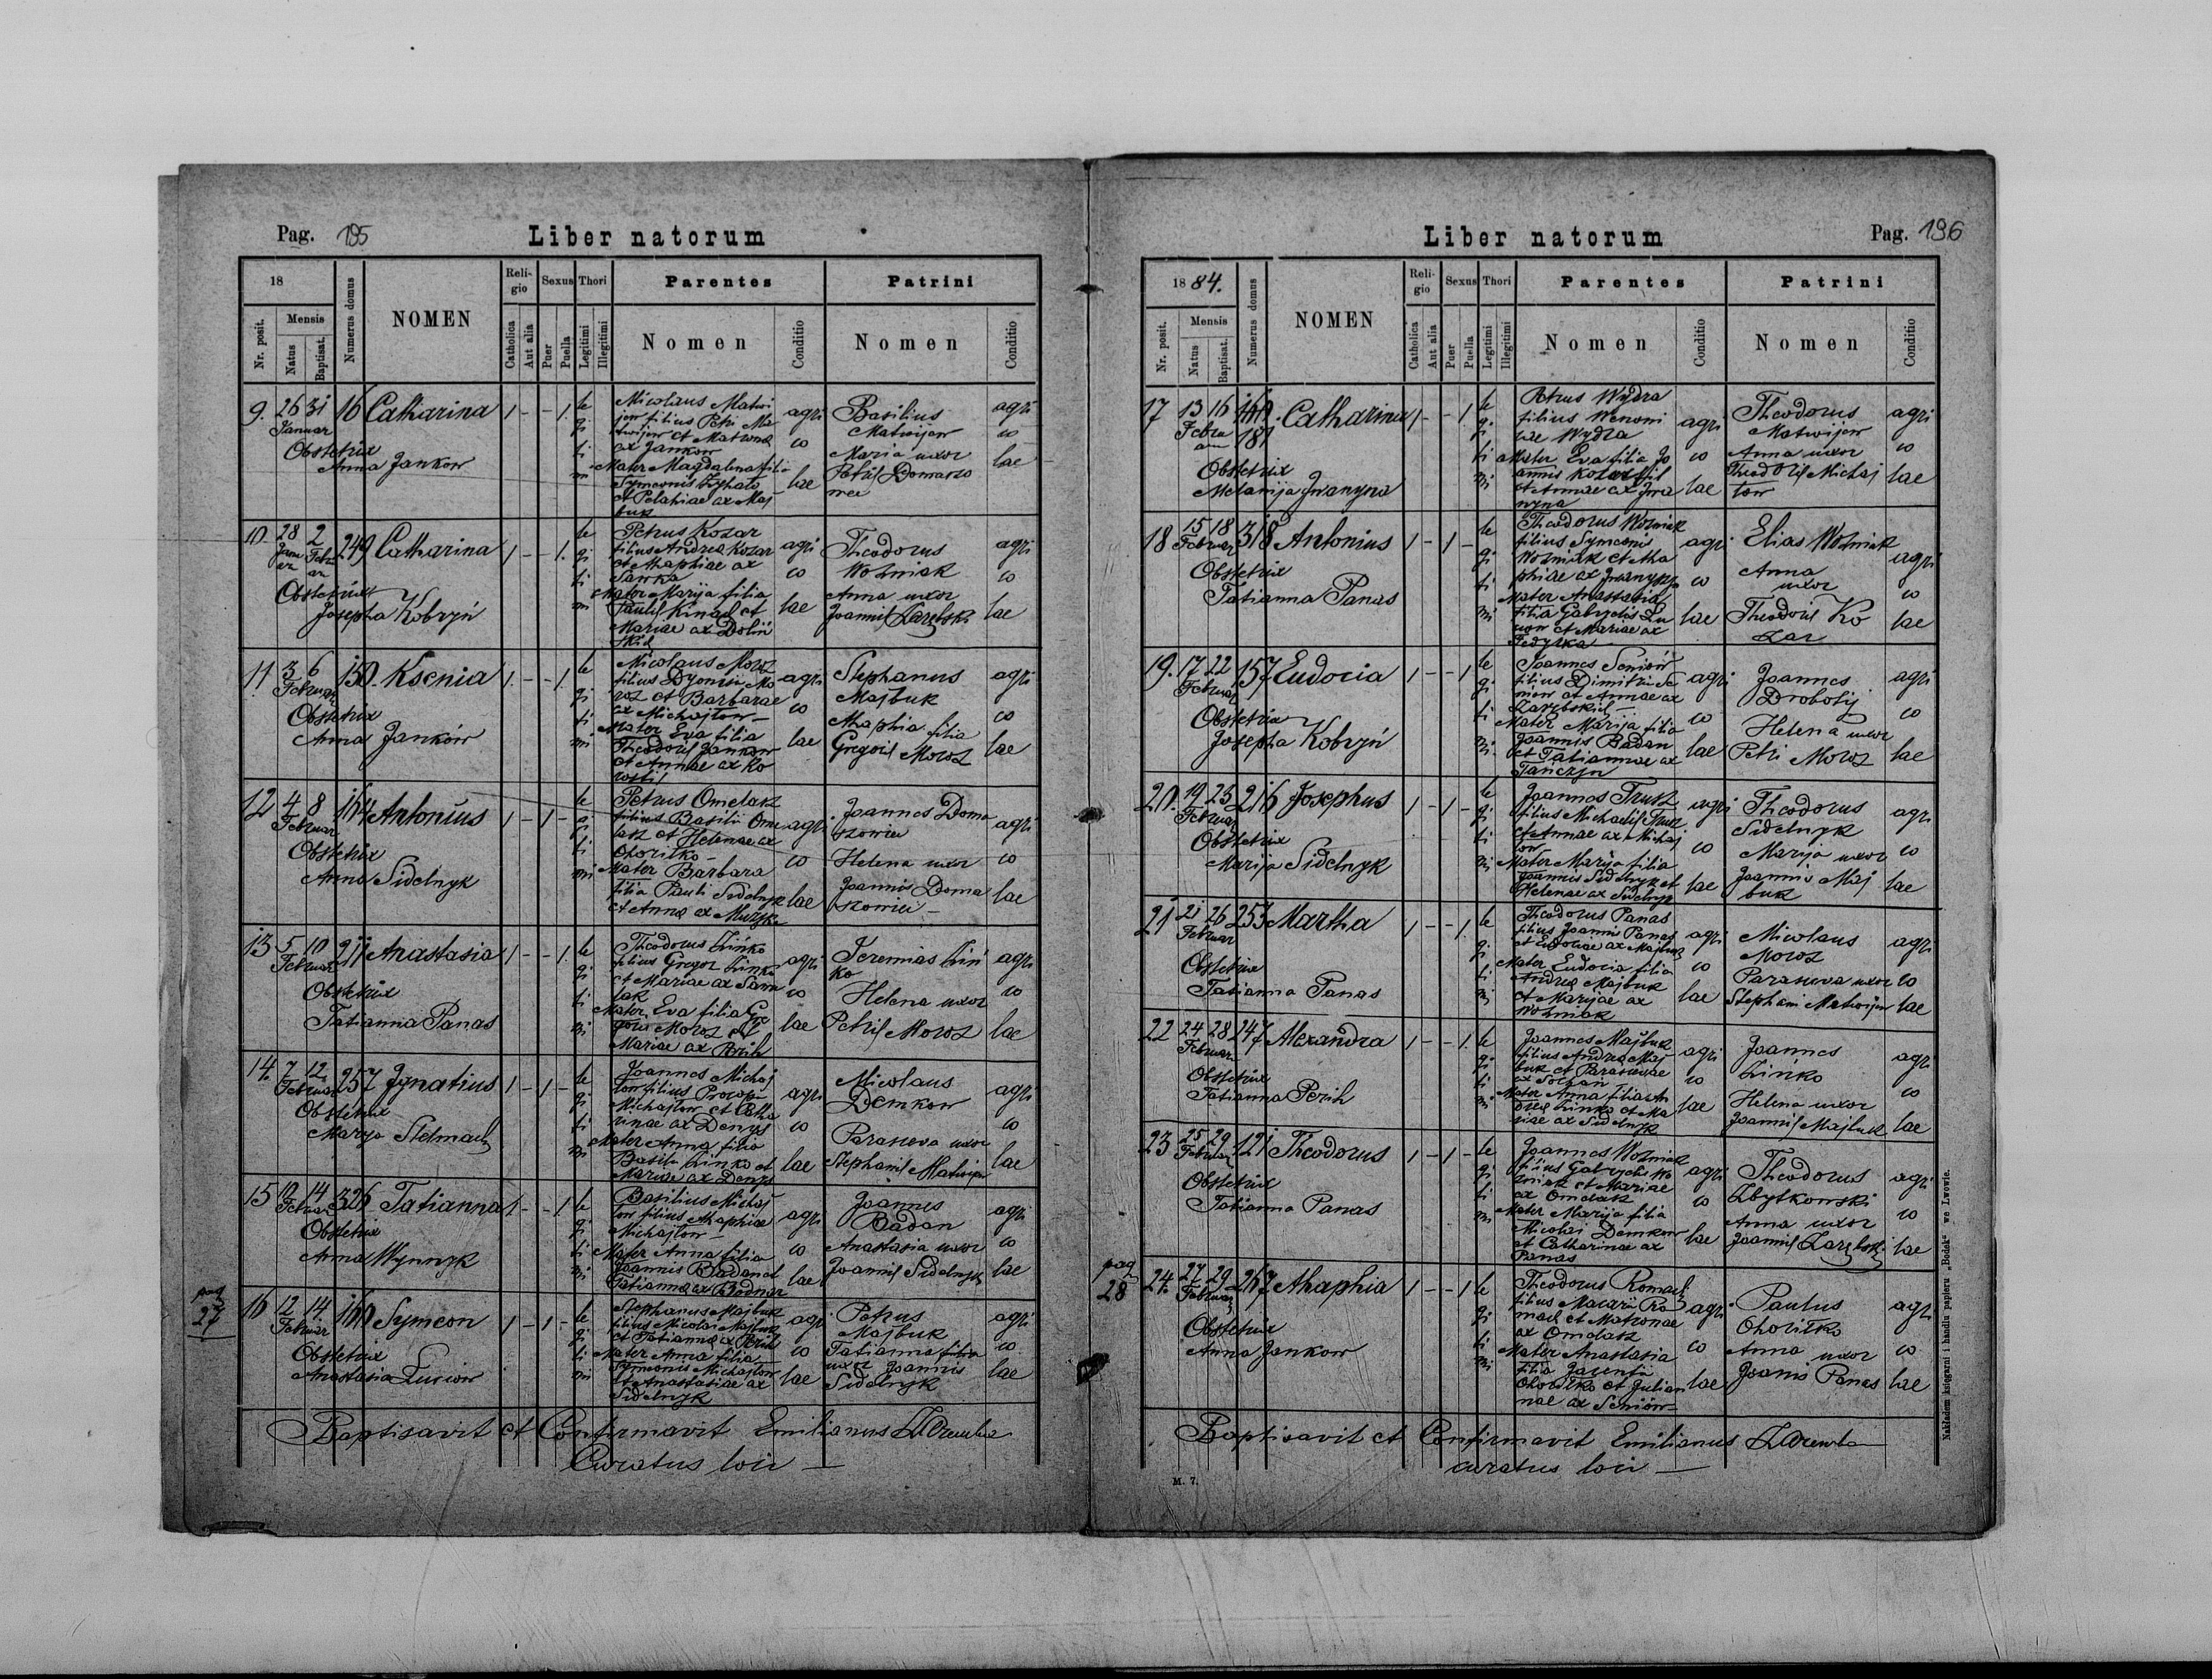 Pag. 195
Liber natorum
18
Nr. posit.
Mensis
Natus
Baptisat.
Numerus domus
NOMEN
Religio
Catholica
Aut alia
Sexus
Puer
Puella
Thori
Legitimi
Illegitimi
Parentes
Nomen
Conditio
Patrini
Nomen
Conditio
9. 26 31 16 Catharina 1 - - 1.
Januar
Obstetrix
Anna Jankow
legitimi
Micolaus Matwi
jow filius Petri Ma
twijow et Matronae
ax Jankow
Mater Magdalena filia
Symeonis
et Pelahiae ax Maj
buk
agricolae
Basilius
Matwijow
Maria uxor
Petri Domaszo
wec
agricolae
10. 28 2 249 Catharina 1 - - 1.
Januar Februar
Obstetrix
Josepha Kobryń
legitimi
Petrus Kozar
filius Andreae Kozar
et Ahaphiae ax
Sawka
Mater Marija filia
Pauli Kinael et
Mariae ax Doliń
skid
agricolae
Theodorus
Wozniak
Anna uxor
Joannis Zarębski
agricolae
11. 3 6 150. Ksenia 1. - - 1.
Februar
Obstetrix
Anna Janków
legitimi
Micolaus Moroz
filius Dyonisii Mo
roz et Barbarae
ax Michajlow -
Mater Eva filia
Theodori Jankow
et Annae ax Ko
agricolae
Stephanus
Majbuk
Ahaphia filia
Gregorii Moroz
agricolae
12 4 8 164 Antonius 1 - 1 -
Februar
Obstetrix
Anna Sidelnyk
legitimi
Petrus Omelak
filius Basilii Ome
lak et Helenae ax
Choritko -
Mater Barbara
filia Pauli Sidelnyk
et Annae ax Muzyka
agricolae
Joannes Doma
szowiec
Helena uxor
Joannis Doma
szowiec -
agricolae
13 5 10 211 Anastasia 1 - - 1.
Februar
Obstetrix
Tatianna Panas
legitimi
Theodorus Linko
filius Gregor Linko
et Mariae ax Sam
lak
Mater Eva filia Gre
gorii Moroz et
Mariae ax Perih
agricolae
Jeremias Lin
ko
Helena uxor
Petri Moroz
agricolae
14. 7 12 257 Jgnatius 1 - 1 -
Februar
Obstetrix
Marya Stelmach
legitimi
Joannes Michaj
low filius Procopi
Michajlow et Catha
rinae ax Denys
Mater Anna filia
Basilii Linko et
Mariae ax Denys
agricolae
Micolaus
Demkow
Parasceva uxor
Stephani Matwijow
agricolae
15 10 14 326 Tatianna 1 - - 1
Februar
Obstetrix
Anna Wynnyk
legitimi
Basilius Michaj
low filius Ahaphiae
Michajlow -
Mater Anna filia
Joannis Badan et
Tatiannae ax Bodnar
agricolae
Joannes
Badan
Anastasia uxor
Joannis Sidelnyk
agricolae
pag
27
16 12 14 160 Symeon 1 - 1 -
Februar
Obstetrix
Anastasia Luciow
legitimi
Stephanus Majbuk
filius Micolai Majbuk
et Tatiannae ax Perih
Mater Anna filia
Symeonis Michajlow
et Anastasiae ax
Sidelnyk
agricolae
Petrus
Majbuk
Tatianna filia
uxor Joannis
Sidelnyk
agricolae
Baptisavit et Confirmavit Emilianus
Curatus loci -
Liber natorum
Pag. 196
1884.
Nr. posit.
Mensis
Natus
Baptisat.
Numerus domus
NOMEN
Religio
Catholica
Aut alia
Sexus
Puer
Puella
Thori
Legitimi
Illegitimi
Parentes
Nomen
Conditio
Patrini
Nomen
Conditio
17 13 16 181 Catharina 1 - - 1.
Februar
Obstetrix
Melanija Jwanyna
legitimi
Petrus Wydra
filius
Wydra
Mater Eva filia Jo
annis Kozar fil
et Annae ax Jwa
nyna
agricolae
Theodorus
Matwijow
Anna uxor
Theodori Michaj
low
agricolae
18 15 18 318 Antonius 1 - 1 -
Februar
Obstetrix
Tatianna Panas
legitimi
Theodorus Wozniak
filius Symeonis
Wozniak et Aha
phiae ax
Mater Anastasia
filia Gabryelis Lu
ciow et Mariae ax
Fedyrka
agricolae
Elias Wozniak
Anna
uxor
Theodori Ko
zar
agricolae
19. 17 22 157 Eudocia 1 - - 1
Februar
Obstetrix
Josepha Kobryń
legitimi
Joannes Seniów
filius Dimitri Se
niow et Annae ax
Zarębskid -
Mater Marija filia
Joannis Badan
et Tatiannae ax
Tanczyn
agricolae
Joannes
Drobotij
Helena uxor
Petri Moroz
agricolae
20. 19 23 216 Josephus 1 - 1 -
Februar
Obstetrix
Marija Sidelnyk
legitimi
Joannes Trusz
filius Michaelis Trusz
et Annae ax Michaj
low
Mater Marija filia
Joannis Sidelnyk et
Helenae ax Sidelnyk
agricolae
Theodorus
Sidelnyk
Marija uxor
Joannis Maj
buk
agricolae
21 21 26 253 Martha 1 - - 1.
Februar
Obstetrix
Tatianna Panas
legitimi
Theodorus Panas
filius Joannis Panas
et Eudociae ax Majbuk
Mater Eudocia filia
Andreae Majbuk
et Marijae ax
Wozniak
agricolae
Micolaus
Moroz
Parasceva uxor
Stephani Matwijow
agricolae
22 24 28 247 Alexandra 1 - - 1.
Februar
Obstetrix
Tatianna Perih
legitimi
Joannes Majbuk
filius Andreae Maj
buk et Parascevae
ax Soltan
Mater Anna filia An
dreae Linko et Ma
riae ax Sidelnyk
agricolae
Joannes
Linko
Helena uxor
Joannis Majbuk
agricolae
23 25 29 121 Theodorus 1 - 1 -
Februar
Obstetrix
Tatianna Panas
legitimi
Joannes Wozniak
filius Gabryelis Wo
zniak et Mariae
ax Omelak
Mater Marija filia
Micolai Demkow
et Catharinae ax
Panas
agricolae
Theodorus
Zbytkowski
Anna uxor
Joannis Zarębski
agricolae
pag
28
24. 27 29 267 Ahaphia 1 - - 1
Februar
Obstetrix
Anna Jankow
legitimi
Theodorus Romach
filius Macarii Ro
mach et Matronae
ax Omelak
Mater Anastasia
filia Jacenti
Choritko et Julian
nae ax Seniów -
agricolae
Paulus
Choritko
Anna uxor
Joannis Panas
agricolae
Baptisavit et Confirmavit Emilianus
curatus loci -
M. 7.
Nakładem księgarni i handlu papieru „Bodek" we Lwowie.